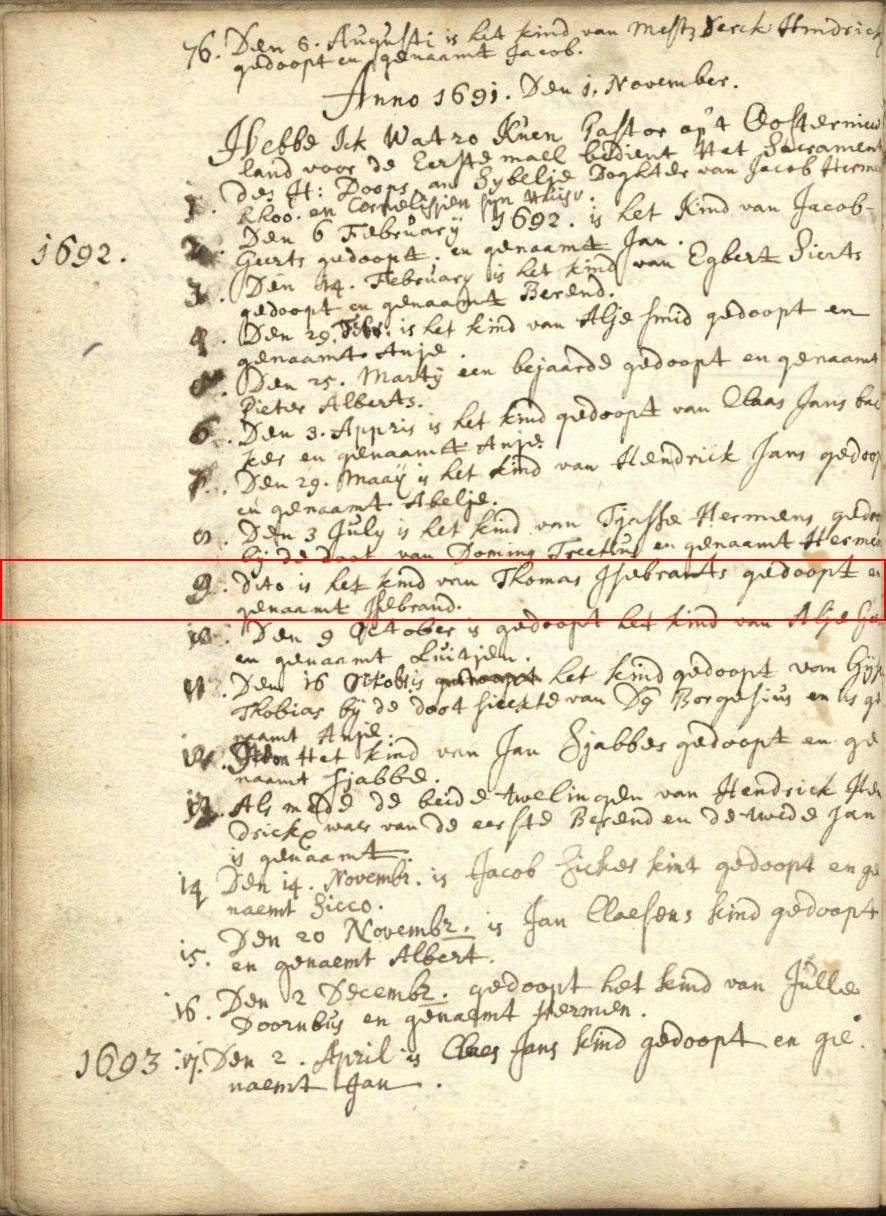 76. Den 6. Augusti is het kind van Mestr Derck Hindrick
gedoopt en genaamt Jacob.
Anno 1691. Den 1. November.
Hebbe Ick Watzo Kuen Pastor op't Oosternieu
land voor de Eerste mael bedient Het Sacrament
1. des H: Doops, an Sybeltje Doghter van Jacob Herme
Khoo. en Cornelissien syn Huisv.
1692. 2. Den 6 February 1692. is het Kind van Jacob
Geerts gedoopt. en genaamt Jan.
3. Den 14. February is het kind van Egbert Sierts
gedoopt en genaamt Berend.
4. Den 29. Febr. is het kind van Alje smid gedoopt en
genaamt Anje.
5. Den 25. Martij een bejaarde gedoopt en genaamt
Pieter Alberts.
6. Den 3. Appris is het kind gedoopt van Claas Jans bac
kes en genaamt Anje.
7. Den 29. Maaij is het kind van Hendrick Jans gedoop
en genaamt Abelje.
8. Den 3 July is het kind van Tjasse Hermens gedoo
bij de doot van Doming en genaamt Hermen
9. dito is het kind van Thomas Isebrants gedoopt en
genaamt Isebrand.
10. Den 9 October is gedoopt het kind van Alje
en genaamt Luitjen.
11. Den 16 Octobris het kind gedoopt van
Thobias bij de doot sieckte van Dȳ Borgesius en is ge
naamt Anje.
12. Het kind van Jan Sjabbes gedoopt en ge
naamt Sjabbe.
13. Als mede de beide twelingen van Hendrick Hen
drickx waer van de eerste Berend en de twede Jan
is genaamt.
14 Den 14. Novembr. is Jacob Zickes kint gedoopt en ge
naemt Zicco.
15. Den 20 Novembr. is Jan Claesens kind gedoopt
en genaemt Albert.
16. Den 2 Decembr. gedoopt het kind van Julle
Doornbus en genaemt Hermien.
1693 17. Den 2. April is Claes Jans kind gedoopt en ge
naemt Jan.